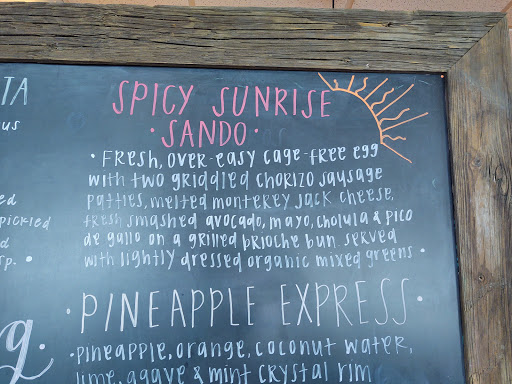 TA
SPICY SUNRISE
us
• SANDO •
• FRESH, OVER-EASY CAGE-FREE EGG
WITH TWO GRIDDLED CHORIZO SAUSAGE
ed
PATTIES, MELTED MONTEREY JACK CHEESE,
pickled
FRESH SMASHED AVOCADO, MAYO, CHOLULA & PICO
d
DE GALLO ON A GRILLED BRIOCHE BUN. SERVED
SP. •
WITH LIGHTLY DRESSED ORGANIC MIXED GREENS •
• PINEAPPLE EXPRESS •
g
• PINEAPPLE, ORANGE, COCONUT WATER,
LIME, AGAVE & MINT CRYSTAL RIM